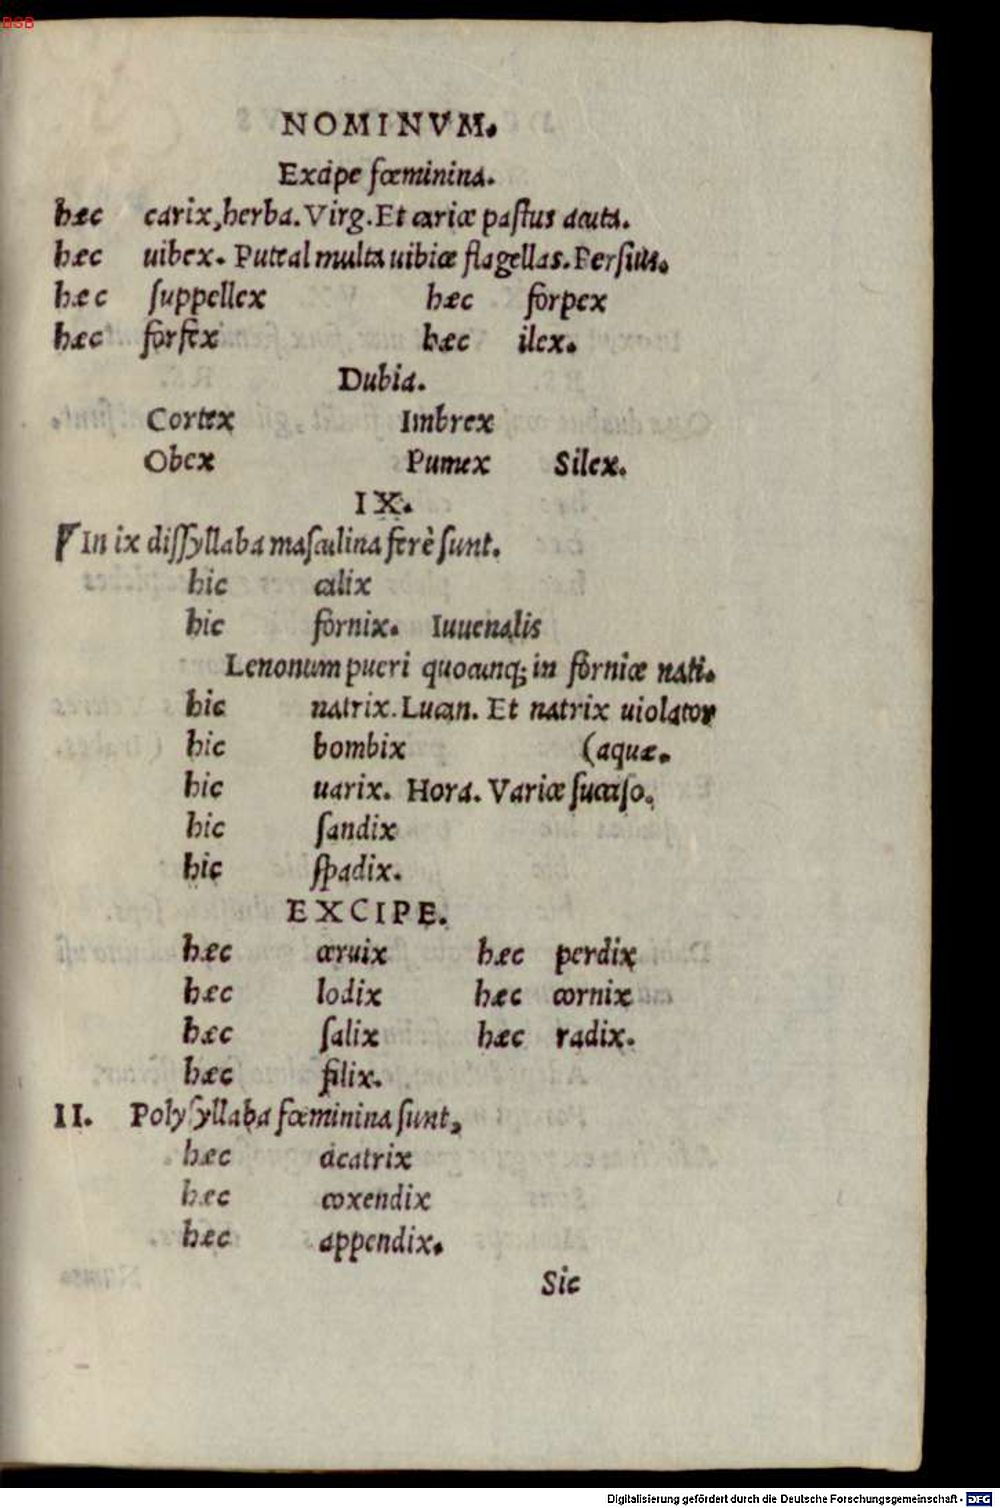 BSB
NOMINVM.
Excipe fœminina.
hæc carix, herba. Virg. Et carice pastus acuta.
hæc uibex. Puteal multa uibice flagellas. Persius.
hæc suppellex hæc forpex
hæc forfex hæc ilex.
Dubia.
Cortex Imbrex
Obex Pumex Silex.
IX.
In ix dissyllaba masculina ferè sunt.
hic calix
hic fornix. Iuuenalis
Lenonum pueri quocunq; in fornice nati.
hic natrix. Lucan. Et natrix uiolator
hic bombix (aquæ.
hic uarix. Hora. Varice succiso.
hic sandix
hic spadix.
EXCIPE.
hæc ceruix hæc perdix
hæc lodix hæc cornix
hæc salix hæc radix.
hæc filix.
II. Polysyllaba fœminina sunt,
hæc cicatrix
hæc coxendix
hæc appendix.
Sic
Digitalisierung gefördert durch die Deutsche Forschungsgemeinschaft - DFG